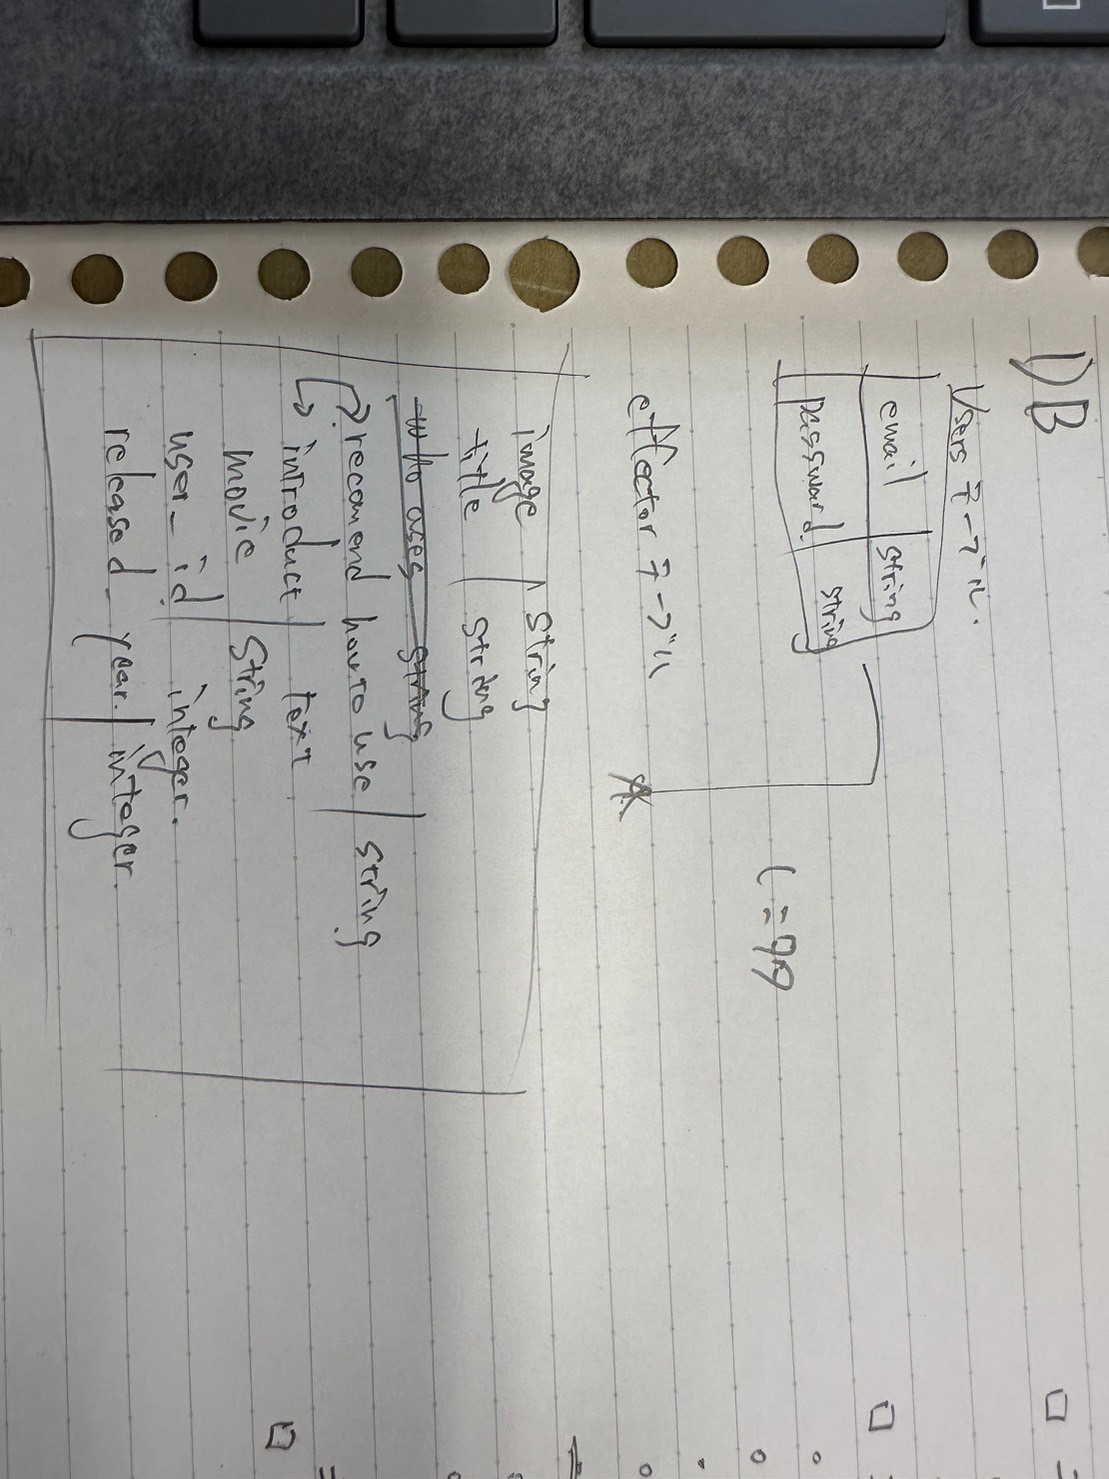 DB
Users テーブル.
email string
password. string
1=多の
effector テーブル
image string
title string
who uses string
recomend how to use string
introduct text
movie string
user_id integer.
released year. integer